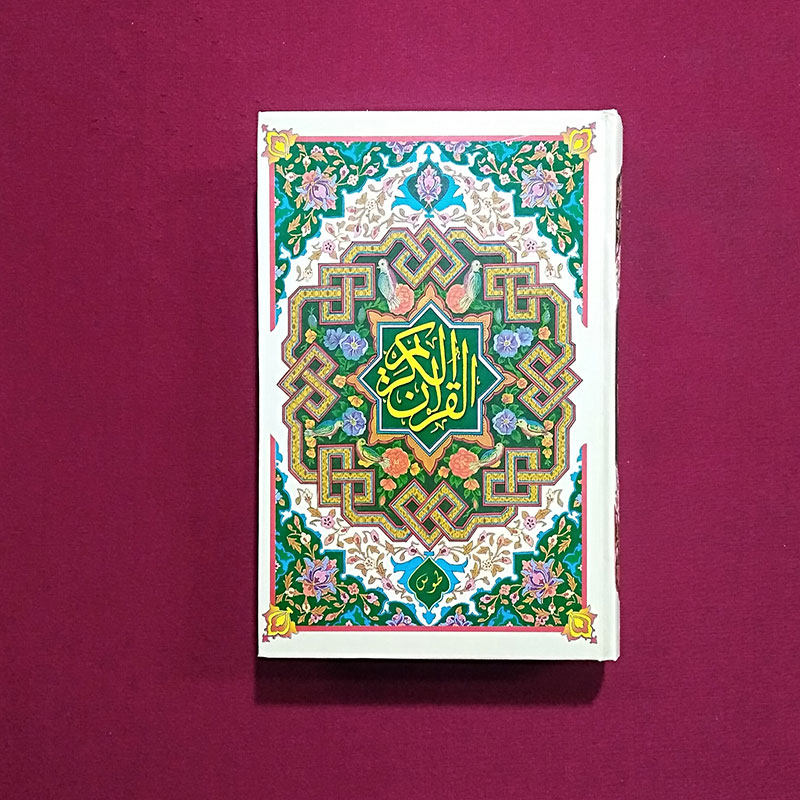 القرآن الكريم
طوس